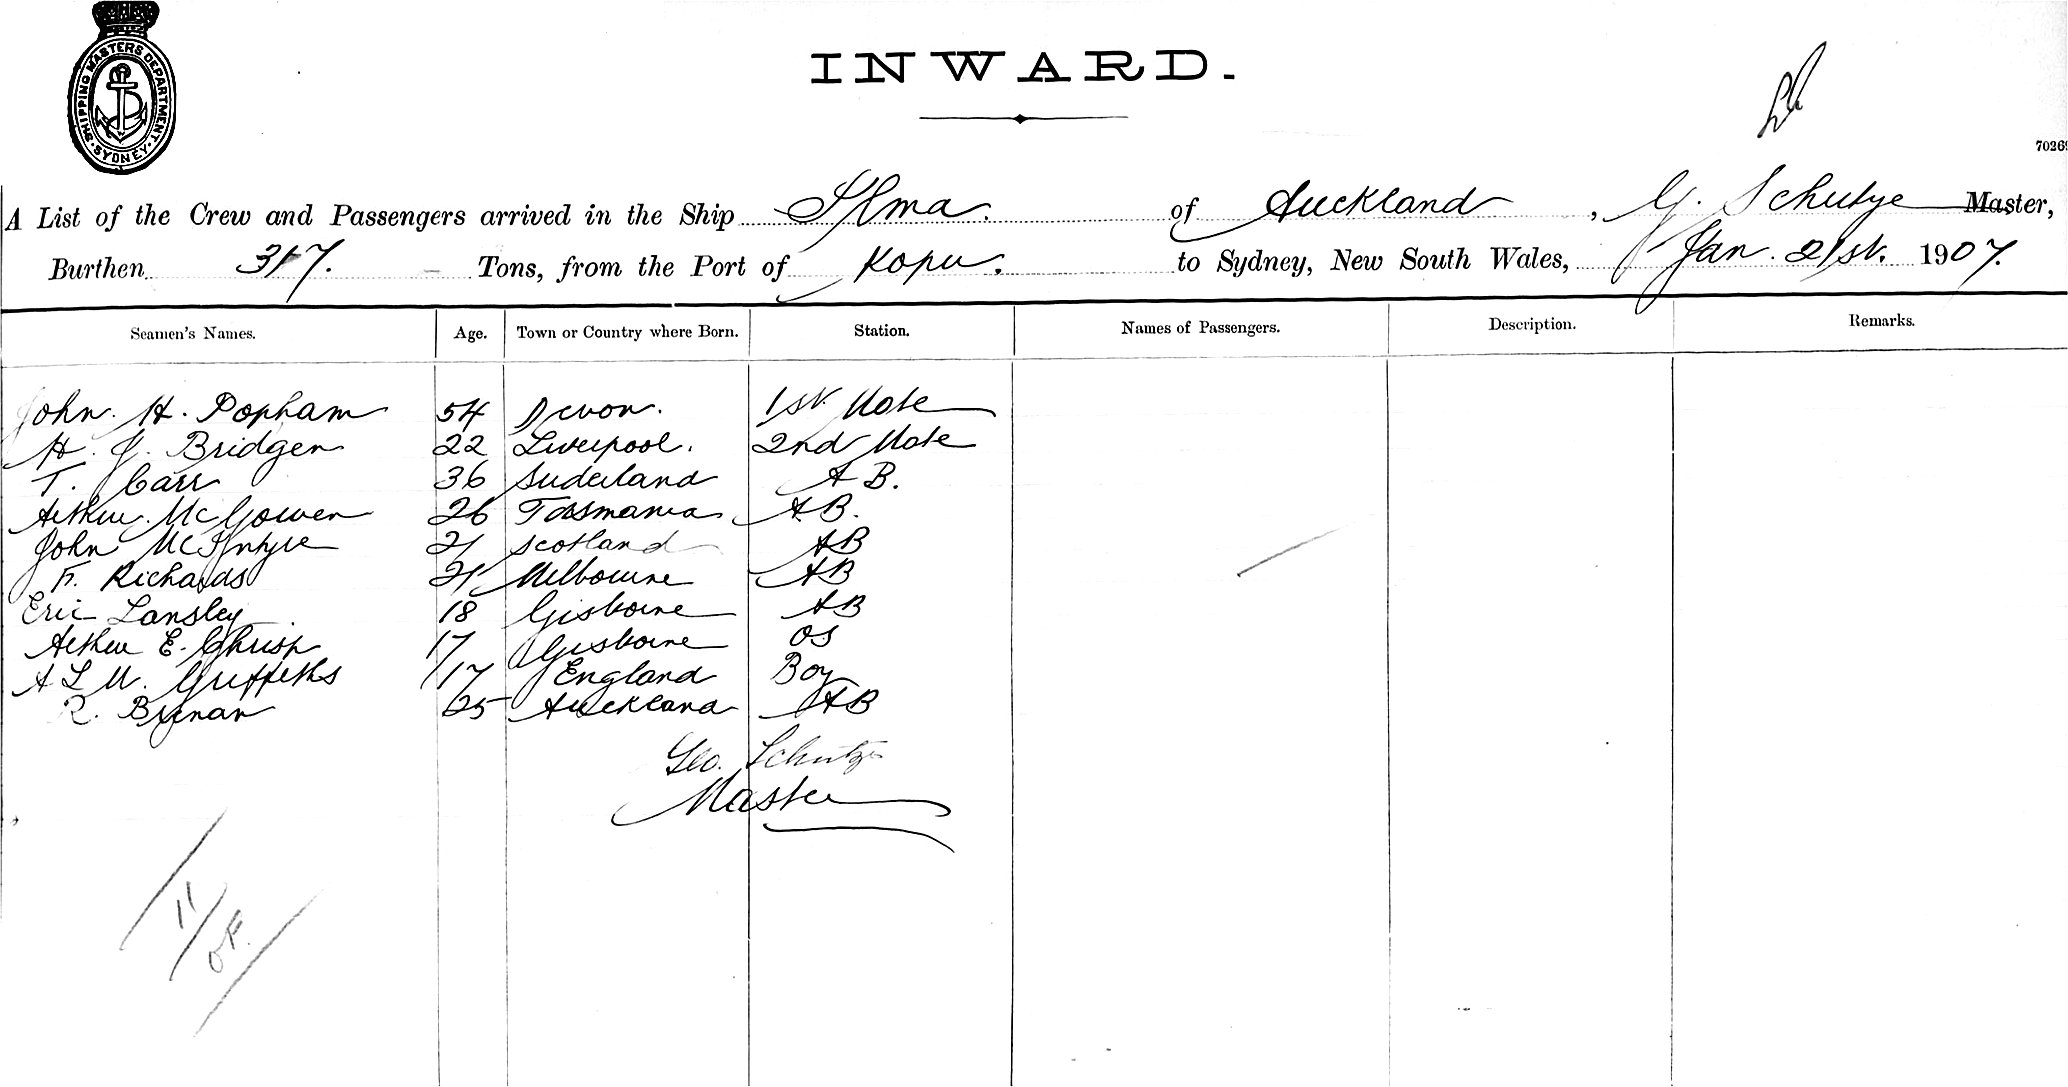 SHIPPING MASTERS DEPARTMENT
SYDNEY
INWARD.
7026
A List of the Crew and Passengers arrived in the Ship Ilma. of Auckland, G. Schutze Master,
Burthen 317. Tons, from the Port of Kopu. to Sydney, New South Wales, Jan. 21st. 1907.
Seamen's Names. Age. Town or Country where Born. Station. Names of Passengers. Description. Remarks.
John. H. Popham 54 Devon. 1st Mate
H. J. Bridgen 22 Liverpool. 2nd Mate
T. Carr 36 Suderland A B.
Arthur McGowen 26 Tasmania AB.
John McIntyre 21 Scotland AB
F. Richards 21 Melbourne AB
Eric Lansley 18 Gisborne AB
Arthur E. Chrisp 17 Gisborne OS
A L M. Griffeths 17 England Boy
R. Brenan 25 Auckland AB
Geo. Schutze
Master
11